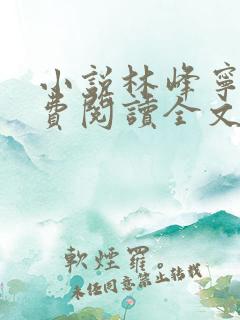 小說林峰寧
費閱讀全文
軟煙羅。
未经同意禁止转载